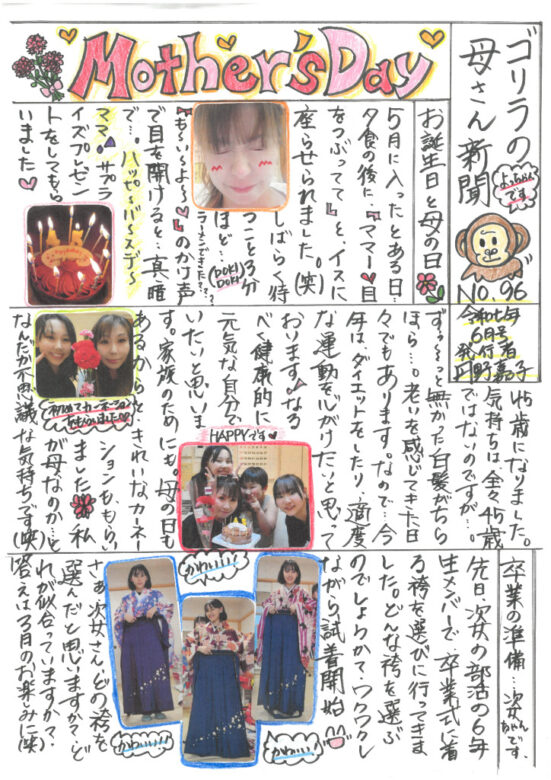 Mother's Day
ゴリラの
母さん新聞
よっちゃん
です
No.96
令和七年
6月号
発付者
円野嘉子
お誕生日と母の日
5月に入ったとある日…
夕食の後に、「ママー♥目
をつぶってて」と、イスに
座らせられました。(笑)
しばらく待
つこと3分
ほど…(DOKI DOKI)
ラーメンできた?…?
「もういーよ」のかけ声
で目を開けると…真っ暗
で…。ハッピーバースデー
ママ。サプラ
イズプレゼン
トをしてもら
いました♥
45歳になりました。
気持ちは、全々45歳
ではないのですが…。
ずぅーっと無かった白髪がちら
ほら…。老いを感じてきた日
々でもあります。なので…今
年は、ダイエットをしたり、適度
な運動を心がけたいと思って
おります。なる
べく健康的に
元気な自分で
いたいと思いま
す。家族のために…。母の日も
あるからときれいなカーネー
ションをもらい
ました 私
が母なのか…と
なんだか不思議な気持ちです(笑)
初めてカーネーション
もらいました
HAPPYです♥
卒業の準備…次女
ちゃんです。
先日、次女の部活の6年
生メンバーで、卒業式に着
る袴を選びに行ってきま
した。どんな袴を選ぶ
のでしょうか?ワクワクし
ながら試着開始
かわいい!!
かわいい!!
かわいい!
さぁ次女さん、どの袴を
選んだと思いますか?ど
れが似合っていますか?
答えは3月のお楽しみに(笑)